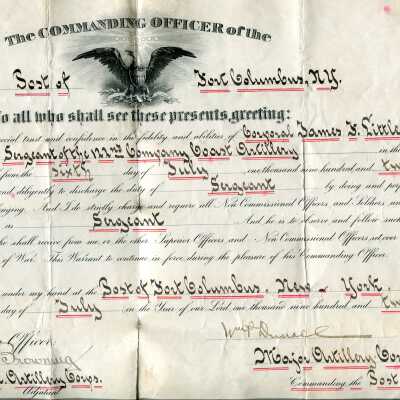 The COMMANDING OFFICER of the
Post of Fort Columbus, N.Y.
To all who shall see these presents, greeting:
special trust and confidence in the fidelity and abilities of Corporal James F. Little
Sergeant of the 122nd Company Coast Artillery in the
from the Sixth day of July one thousand nine hundred and
and diligently to discharge the duty of Sergeant by doing and
And I do strictly charge and require all Non-Commissioned Officers and Soldiers
as Sergeant And he is to observe and follow such
he shall receive from me or the other Superior Officers and Non-Commissioned Officers set over
of War. This Warrant to continue in force during the pleasure of his Commanding Officer.
under my hand at the Post of Fort Columbus, New-York,
day of July in the Year of our Lord one thousand nine hundred and
Officer:
Browning
Artillery Corps.
Adjutant
Major Artillery
Commanding the Post